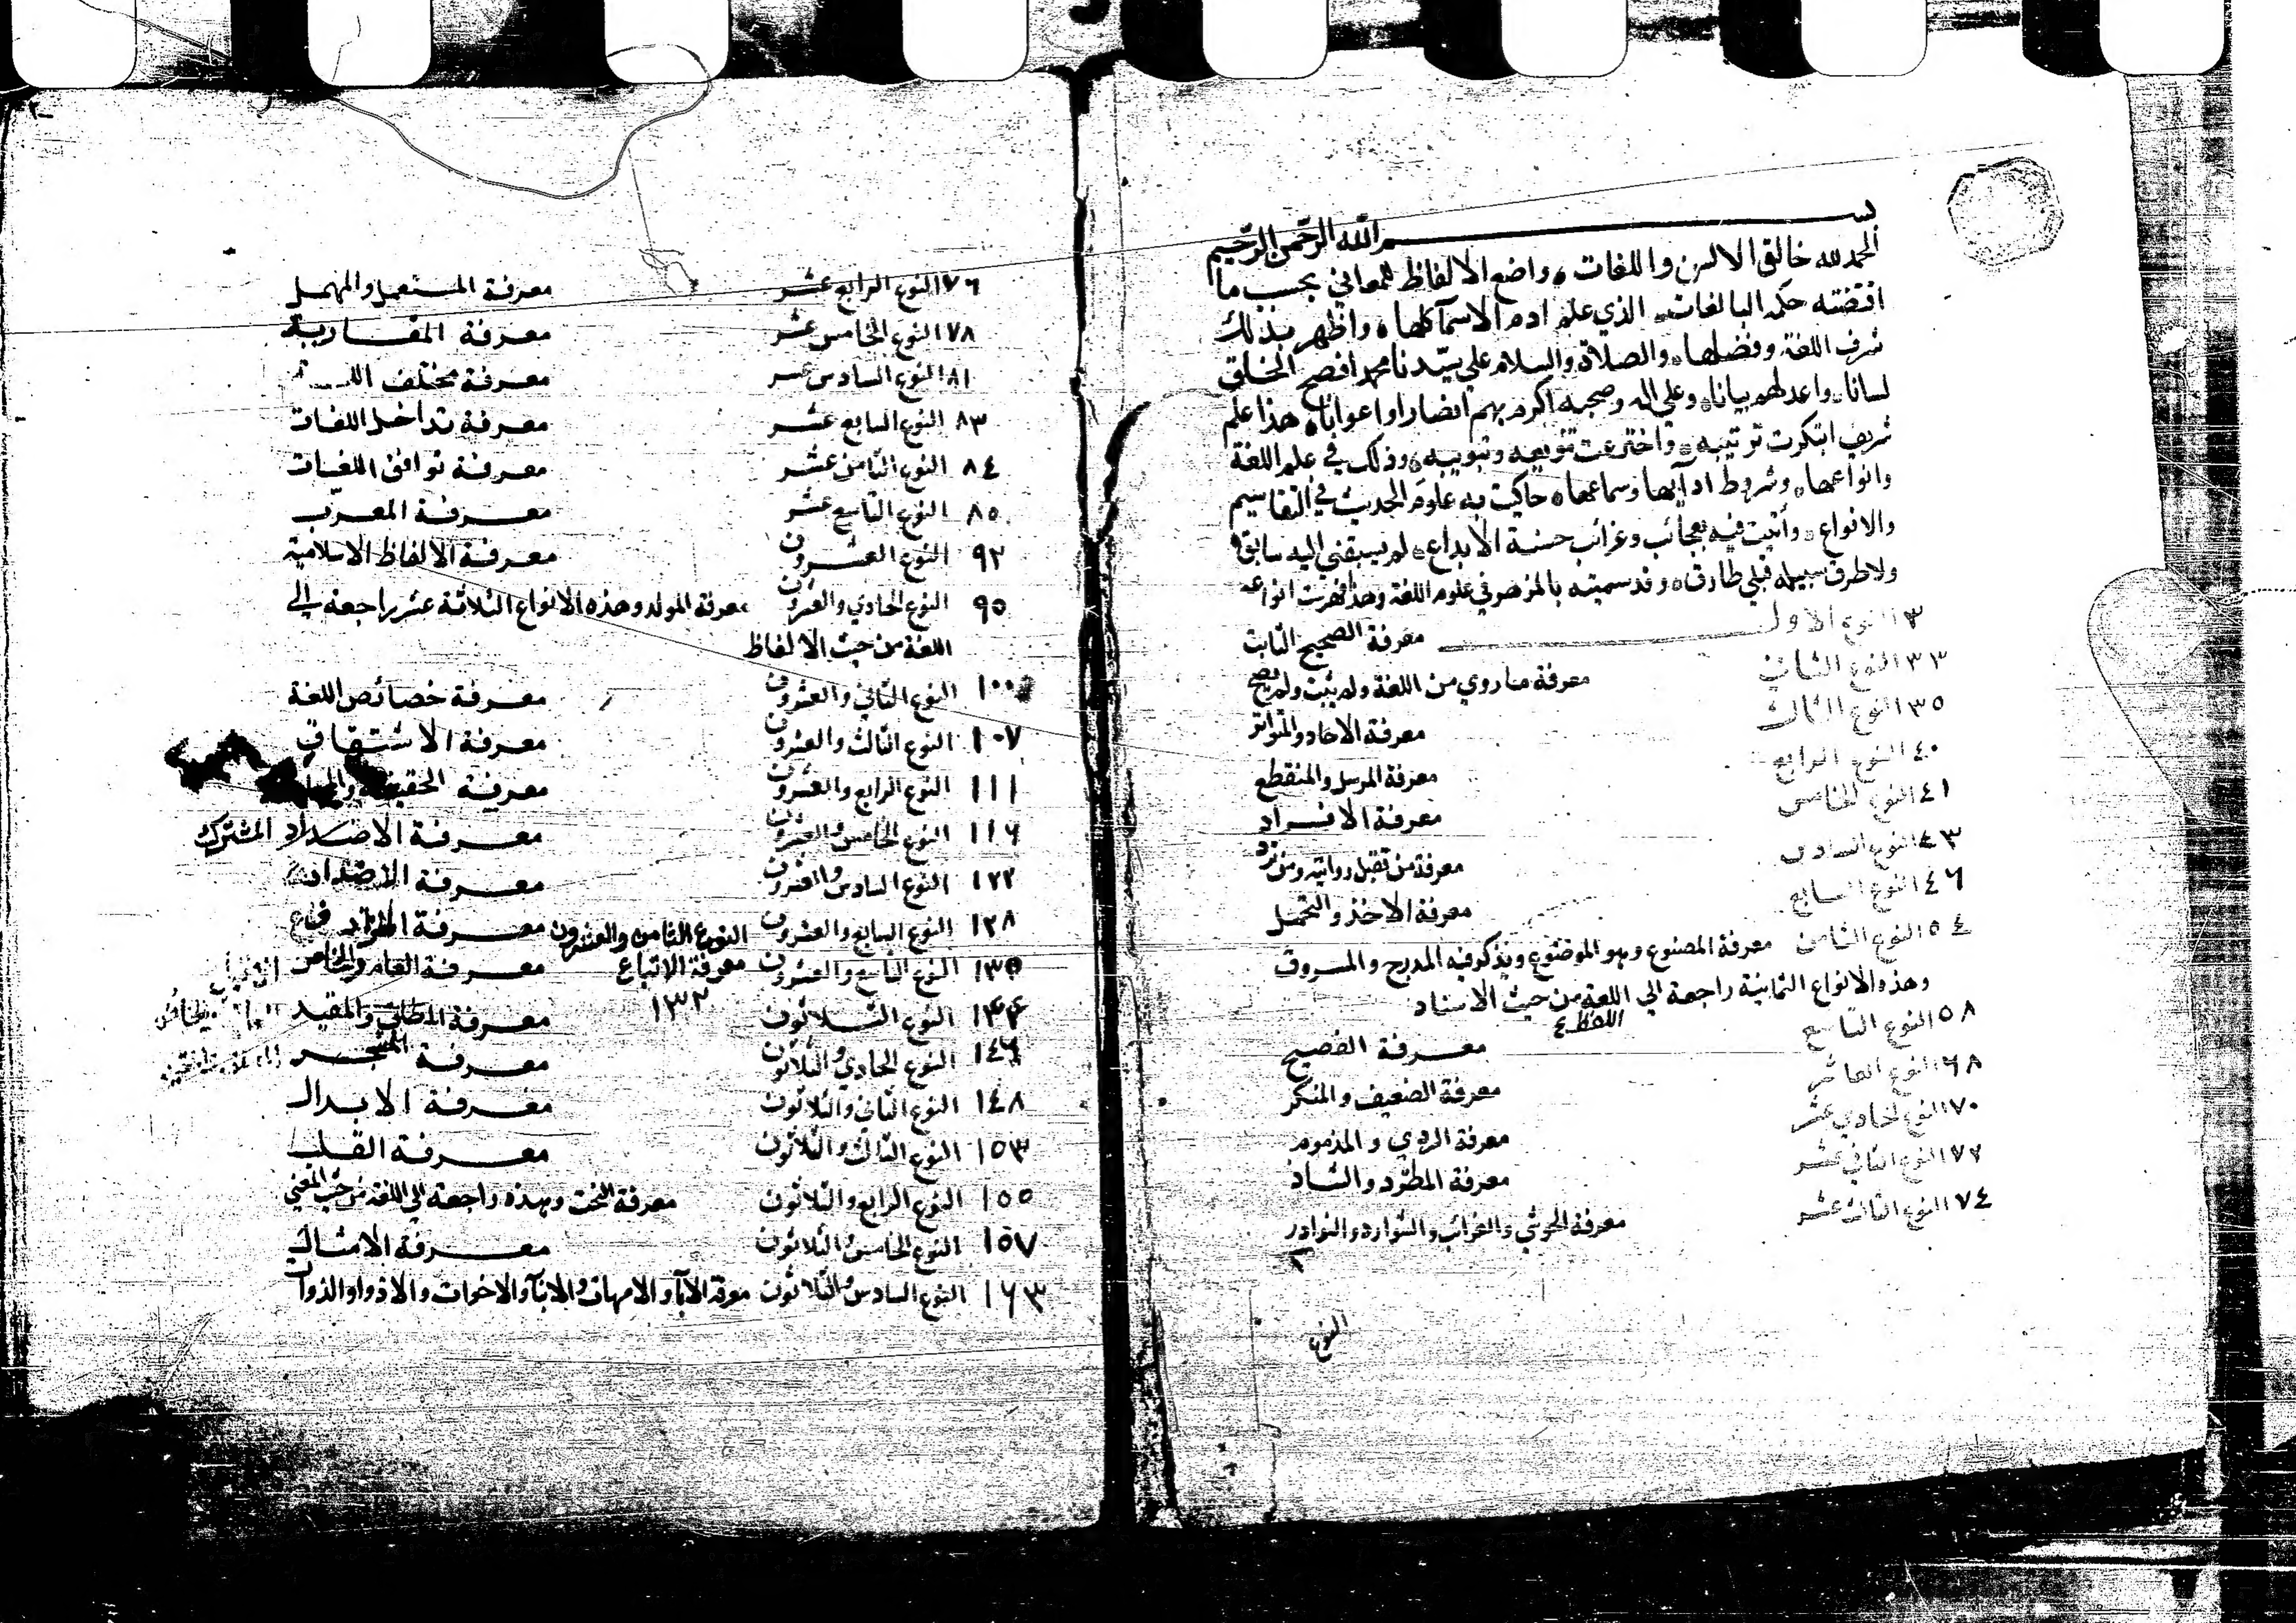 بسم الله الرحمن الرحيم
الحمد لله خالق الالسن واللغات ۰ واضع الالفاظ للمعاني بحسب ما
اقتضته حكمه البالغات ۰ الذي علم ادم الاسمآ كلها ۰ واظهر بذلك
شرف اللغة وفضلها ۰ والصلاة والسلام علي سيدنا محمد افصح الخلق
لسانا ۰ واعدلهم بيانا ۰ وعلي اله وصحبه اكرم بهم انصارا واعوانا ۰ هذا علم
شريف ابتكرت ترتيبه ۰ واخترعت تنويعه وتبويبه ۰ وذلك في علم اللغة
وانواعها ۰ وشروط ادآيها وسماعها ۰ حاكيت به علوم الحديث في التقاسيم
والانواع ۰ وأتيت فيه بعجائب وغرائب حسنة الابداع ۰ لم يسبقني اليه سابق
ولا طرق سبيله قبلي طارق ۰ وقد سميته بالمزهر في علوم اللغة وهذا فهرست انواعه
٣ النوع الاول معرفة الصحيح الثابت
٣٣ النوع الثاني معرفة ما روي من اللغة ولم يثبت ولم يصح
٣٥ النوع الثالث معرفة الاحاد والمتواتر
٤٠ النوع الرابع معرفة المرسل والمنقطع
٤١ النوع الخامس معرفة الافراد
٤٣ النوع السادس معرفة من تقبل روايته ومن ترد
٤٦ النوع السابع معرفة الاخذ والتحمل
٥٤ النوع الثامن معرفة المصنوع وهو الموضوع ويذكر فيه المدرج والمسروق
وهذه الانواع الثمانية راجعة الي اللغة من حيث الاسناد
اللفظ
٥٨ النوع التاسع معرفة الفصيح
٦٨ النوع العاشر معرفة الضعيف والمنكر
٧٠ النوع الحادي عشر معرفة الردي والمذموم
٧٢ النوع الثاني عشر معرفة المطرد والشاذ
٧٤ النوع الثالث عشر معرفة الحوشي والغرائب والشوارد والنوادر
النوع
٧٦ النوع الرابع عشر معرفة المستعمل والمهمل
٧٨ النوع الخامس عشر معرفة المفاريد
٨١ النوع السادس عشر معرفة مختلف
٨٣ النوع السابع عشر معرفة تداخل اللغات
٨٤ النوع الثامن عشر معرفة توافق اللغات
٨٥ النوع التاسع عشر معرفة المعرب
٩٢ النوع العشرون معرفة الالفاظ الاسلامية
٩٥ النوع الحادي والعشرون معرفة المولد وهذه الانواع الثلاثة عشر راجعة الي
اللغة من حيث الالفاظ
١٠٠ النوع الثاني والعشرون معرفة خصائص اللغة
١٠٧ النوع الثالث والعشرون معرفة الاشتقاق
١١١ النوع الرابع والعشرون معرفة الحقيقة
١١٦ النوع الخامس والعشرون معرفة الاضداد المشترك
١٢٢ النوع السادس والعشرون معرفة الاضداد
١٢٨ النوع السابع والعشرون معرفة
النوع الثامن والعشرون
معرفة الاتباع
١٣٢
١٣٥ النوع التاسع والعشرون معرفة العام والخاص
النوع الثلاثون معرفة المطلق والمقيد
١٤٦ النوع الحادي والثلاثون معرفة المشجر
١٤٨ النوع الثاني والثلاثون معرفة الابدال
١٥٣ النوع الثالث والثلاثون معرفة القلب
١٥٥ النوع الرابع والثلاثون معرفة النحت وهذه راجعة الي اللغة من حيث المعني
١٥٧ النوع الخامس والثلاثون معرفة الامثال
١٦٣ النوع السادس والثلاثون معرفة الآبآ والامهات والابنآ والاخوات والاذوا والذوات